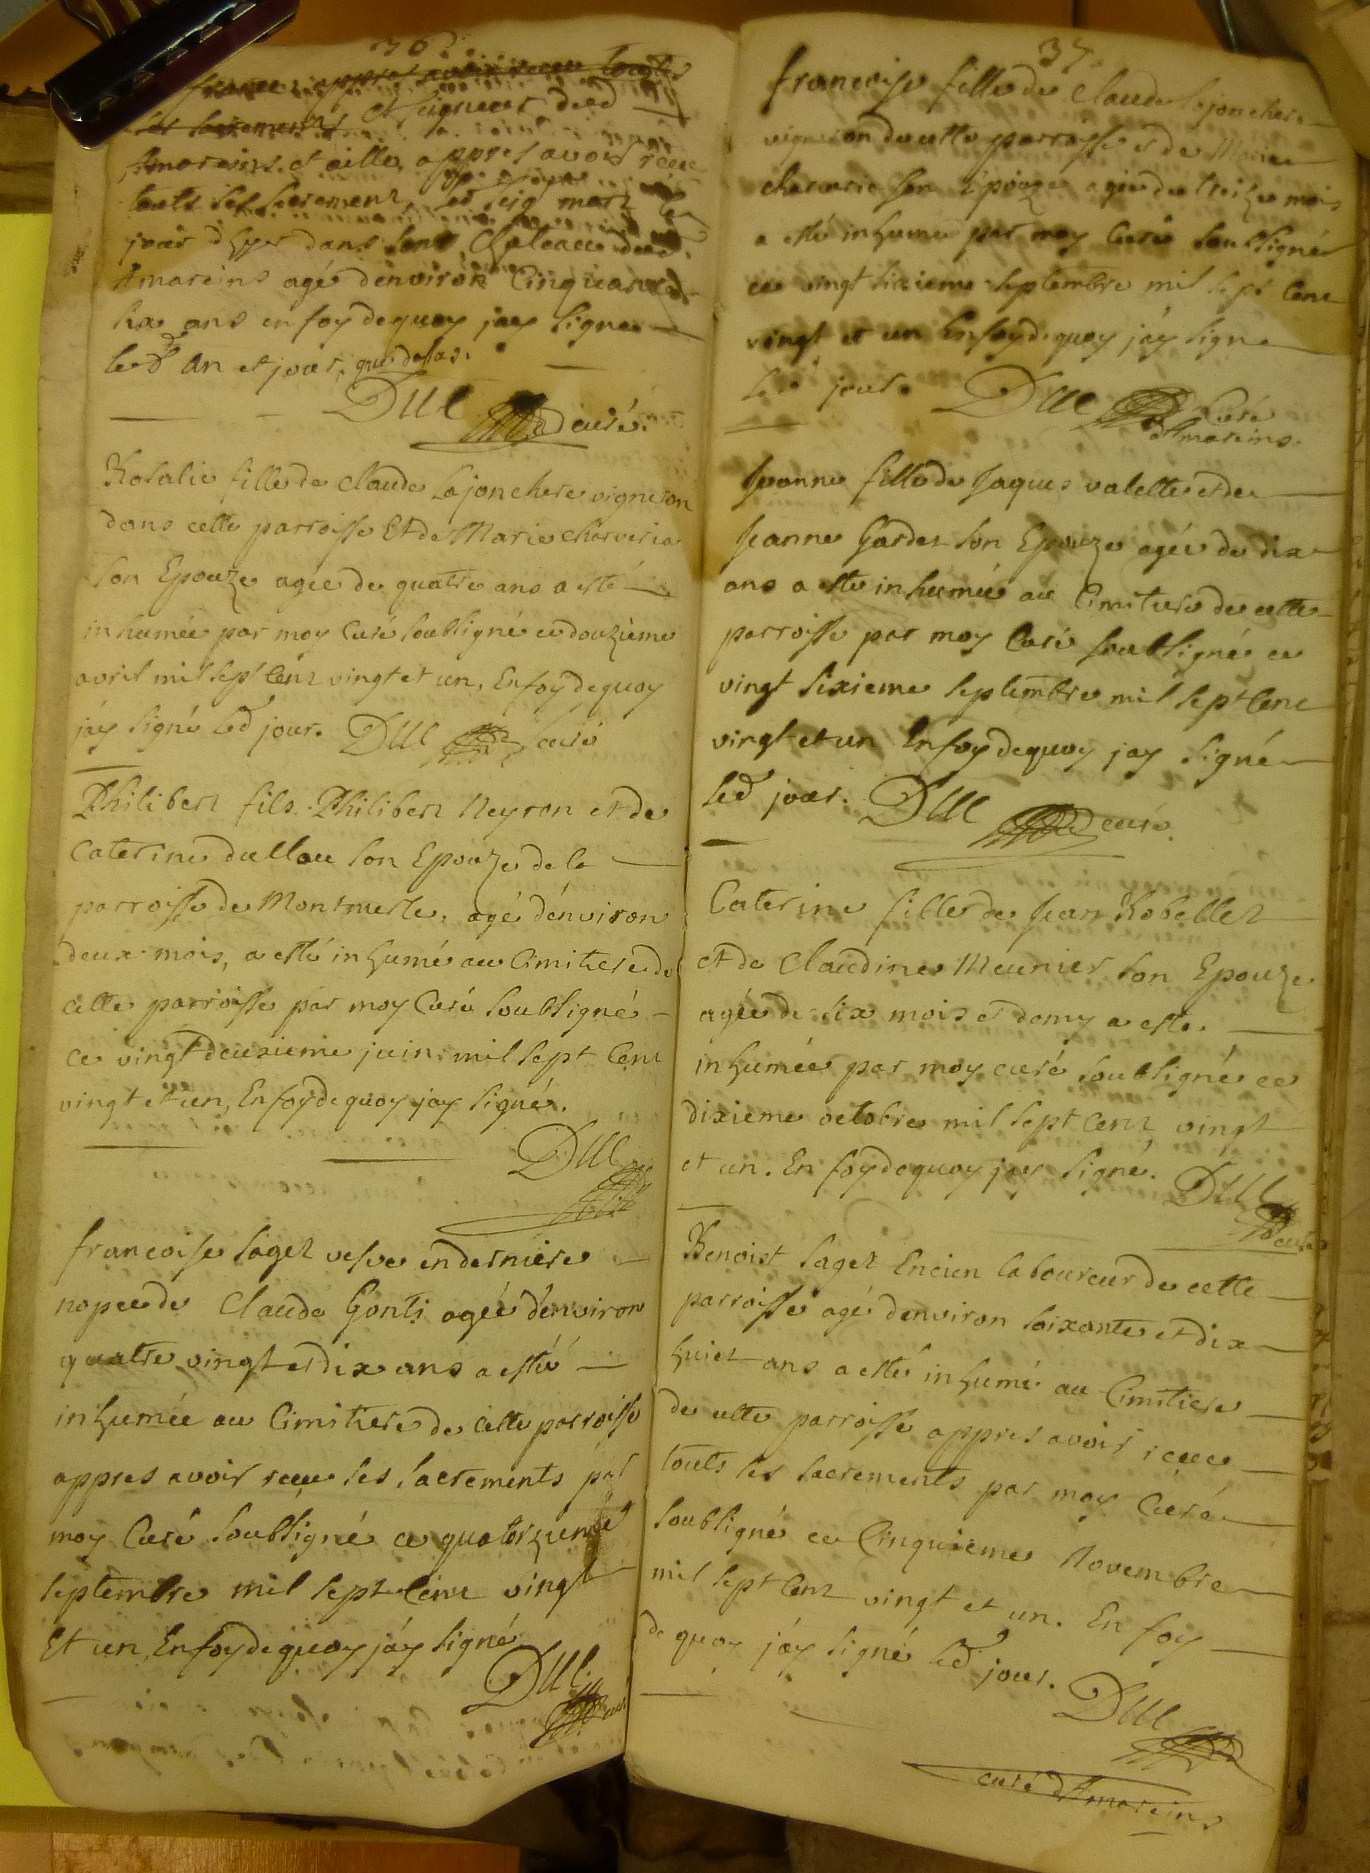 36
france : appres avoir receu touts
les sacrements et seigneur dud
Amareins et aillr, appres avoir receu
touts les sacrements, led seig mort le
jour d'hyer dans son Chateau dud.
Amareins agé denviron Cinquante
six ans en foy dequoy jay signé
led. An et jour, que dessus.
Duc curé.
Rosalie fille de Claude Lajonchere vigneron
dans cette parroisse Et de Marie charverie
son Epouze agee de quatre ans a esté
inhumée par moy Curé soubsigné ce douzieme
avril mil sept Cent vingt et un, En foy dequoy
jáy signé led jour. Duc curé
Philibert fils Philibert Neyron et de
Caterine dullou son Epouze de la
parroisse de Montmerle, agé dénviron
deux mois, a esté inhumé au Cimitiere de
cette parroisse par moy Curé soubsigné
ce vingt deuxieme juin mil sept Cent
vingt et un, En foy dequoy jay signé.
Duc
francoise sager vefve en derniere
nopce de Claude Gonti agée dénviron
quatre vingt et dix ans a esté
inhumée au Cimitiere de cette parroisse
appres avoir receu les sacrements par
moy Curé soubsigné ce quatorzieme
septembre mil sept Cent vingt
Et un, En foy dequoy jáy signé
Duc curé
37.
francoise fille de Claude Lajonchere
vigneron de cette parroisse et de Marie
charverie son Epouze agée de treize mois
a esté inhumé par moy Curé soubsigné
ce vingt sixieme septembre mil sept Cent
vingt et un En foy dequoy jáy signé
led jour. Duc Curé
d'Amareins.
Jeanne fille de Jaques valette et de
Jeanne Gardet son Epouze agée de dix
ans a esté inhumée au Cimitiere de cette
parroisse par moy Curé soubsigné ce
vingt sixieme septembre mil sept Cent
vingt et un En foy dequoy jay signé
led jour. Duc curé.
Caterine fille de Jean Robellet
et de Claudine Meunier son Epouze
agée de six mois et demy a esté
inhumée par moy curé soubsigné ce
dixieme octobre mil sept Cent, vingt
et un. En foy dequoy jay signé. Duc
curé
Benoist sager Encien laboureur de cette
parroisse agé denviron soixante et dix
huict ans a esté inhumé au Cimitiere
de cette parroisse appres avoir receu
touts les sacrements par moy Curé
soubsigné ce Cinquieme Novembre
mil sept Cent vingt et un. En foy
de quoy jáy signé led jour.
Duc
curé d'Amareins